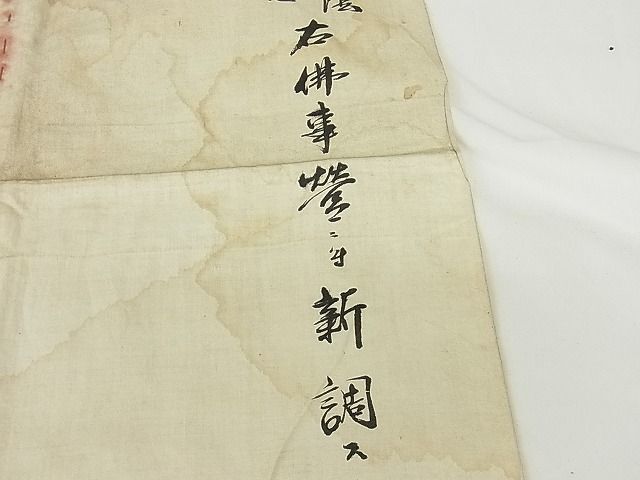 右佛事營ニ付新調ス